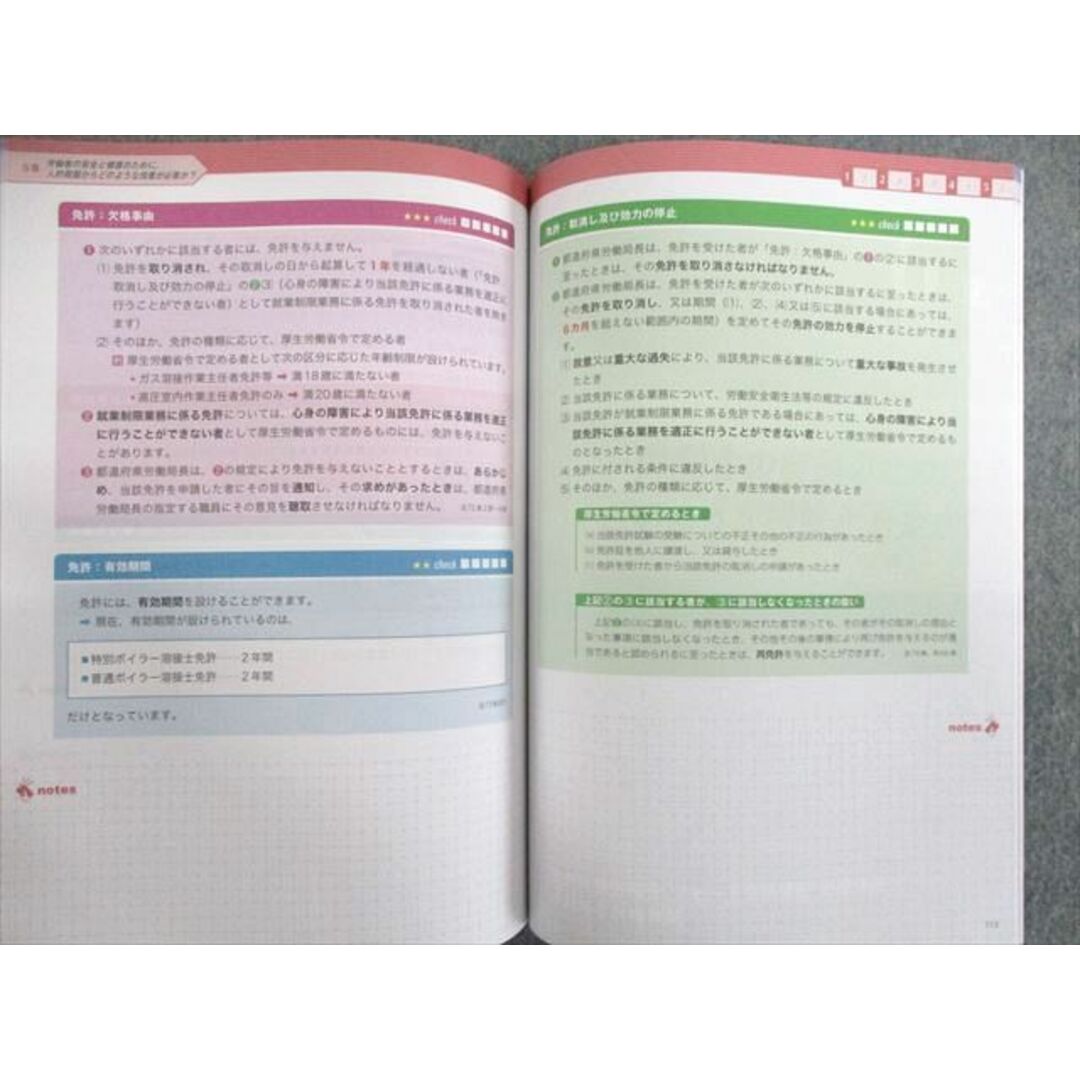 5章 労働者の安全と健康のために、
人的側面からどのような措置が必要か?
免許:欠格事由 ★★★ check
❶ 次のいずれかに該当する者には、免許を与えません。
(1) 免許を取り消され、その取消しの日から起算して1年を経過しない者(「免許:
取消し及び効力の停止」の❷③(心身の障害により当該免許に係る業務を適正に
行うことができない者)として就業制限業務に係る免許を取り消された者を除き
ます)
(2) そのほか、免許の種類に応じて、厚生労働省令で定める者
厚生労働省令で定める者として次の区分に応じた年齢制限が設けられています。
・ガス溶接作業主任者免許等 ➡ 満18歳に満たない者
・高圧室内作業主任者免許のみ ➡ 満20歳に満たない者
❷ 就業制限業務に係る免許については、心身の障害により当該免許に係る業務を適正
に行うことができない者として厚生労働省令で定めるものには、免許を与えないこ
とがあります。
❸ 都道府県労働局長は、❷の規定により免許を与えないこととするときは、あらかじ
め、当該免許を申請した者にその旨を通知し、その求めがあったときは、都道府県
労働局長の指定する職員にその意見を聴取させなければなりません。
免許:有効期間 ★★ check
免許には、有効期間を設けることができます。
➡ 現在、有効期間が設けられているのは、
■特別ボイラー溶接士免許……2年間
■普通ボイラー溶接士免許……2年間
だけとなっています。
notes
1 2 3 4 5
免許:取消し及び効力の停止 ★★★ check
❶ 都道府県労働局長は、免許を受けた者が「免許:欠格事由」の❶の(2)に該当するに
至ったときは、その免許を取り消さなければなりません。
❷ 都道府県労働局長は、免許を受けた者が次のいずれかに該当するに至ったときは、
その免許を取り消し、又は期間(①、②、④又は⑤に該当する場合にあっては、
6カ月を超えない範囲内の期間)を定めてその免許の効力を停止することができま
す。
① 故意又は重大な過失により、当該免許に係る業務について重大な事故を発生させ
たとき
② 当該免許に係る業務について、労働安全衛生法等の規定に違反したとき
③ 当該免許が就業制限業務に係る免許である場合にあっては、心身の障害により当
該免許に係る業務を適正に行うことができない者として厚生労働省令で定めるも
のとなったとき
④ 免許に付される条件に違反したとき
⑤ そのほか、免許の種類に応じて、厚生労働省令で定めるとき
厚生労働省令で定めるとき
当該免許試験の受験についての不正その他の不正の行為があったとき
免許証を他人に譲渡し、又は貸与したとき
免許を受けた者から当該免許の取消しの申請があったとき
上記❷の③に該当する者が、③に該当しなくなったときの扱い
上記❷の③に該当し、免許を取り消された者であっても、その者がその取消しの理由と
なった事項に該当しなくなったとき、その他その後の事情により再び免許を与えるのが適
当であると認められるに至ったときは、再免許を与えることができます。
notes
113